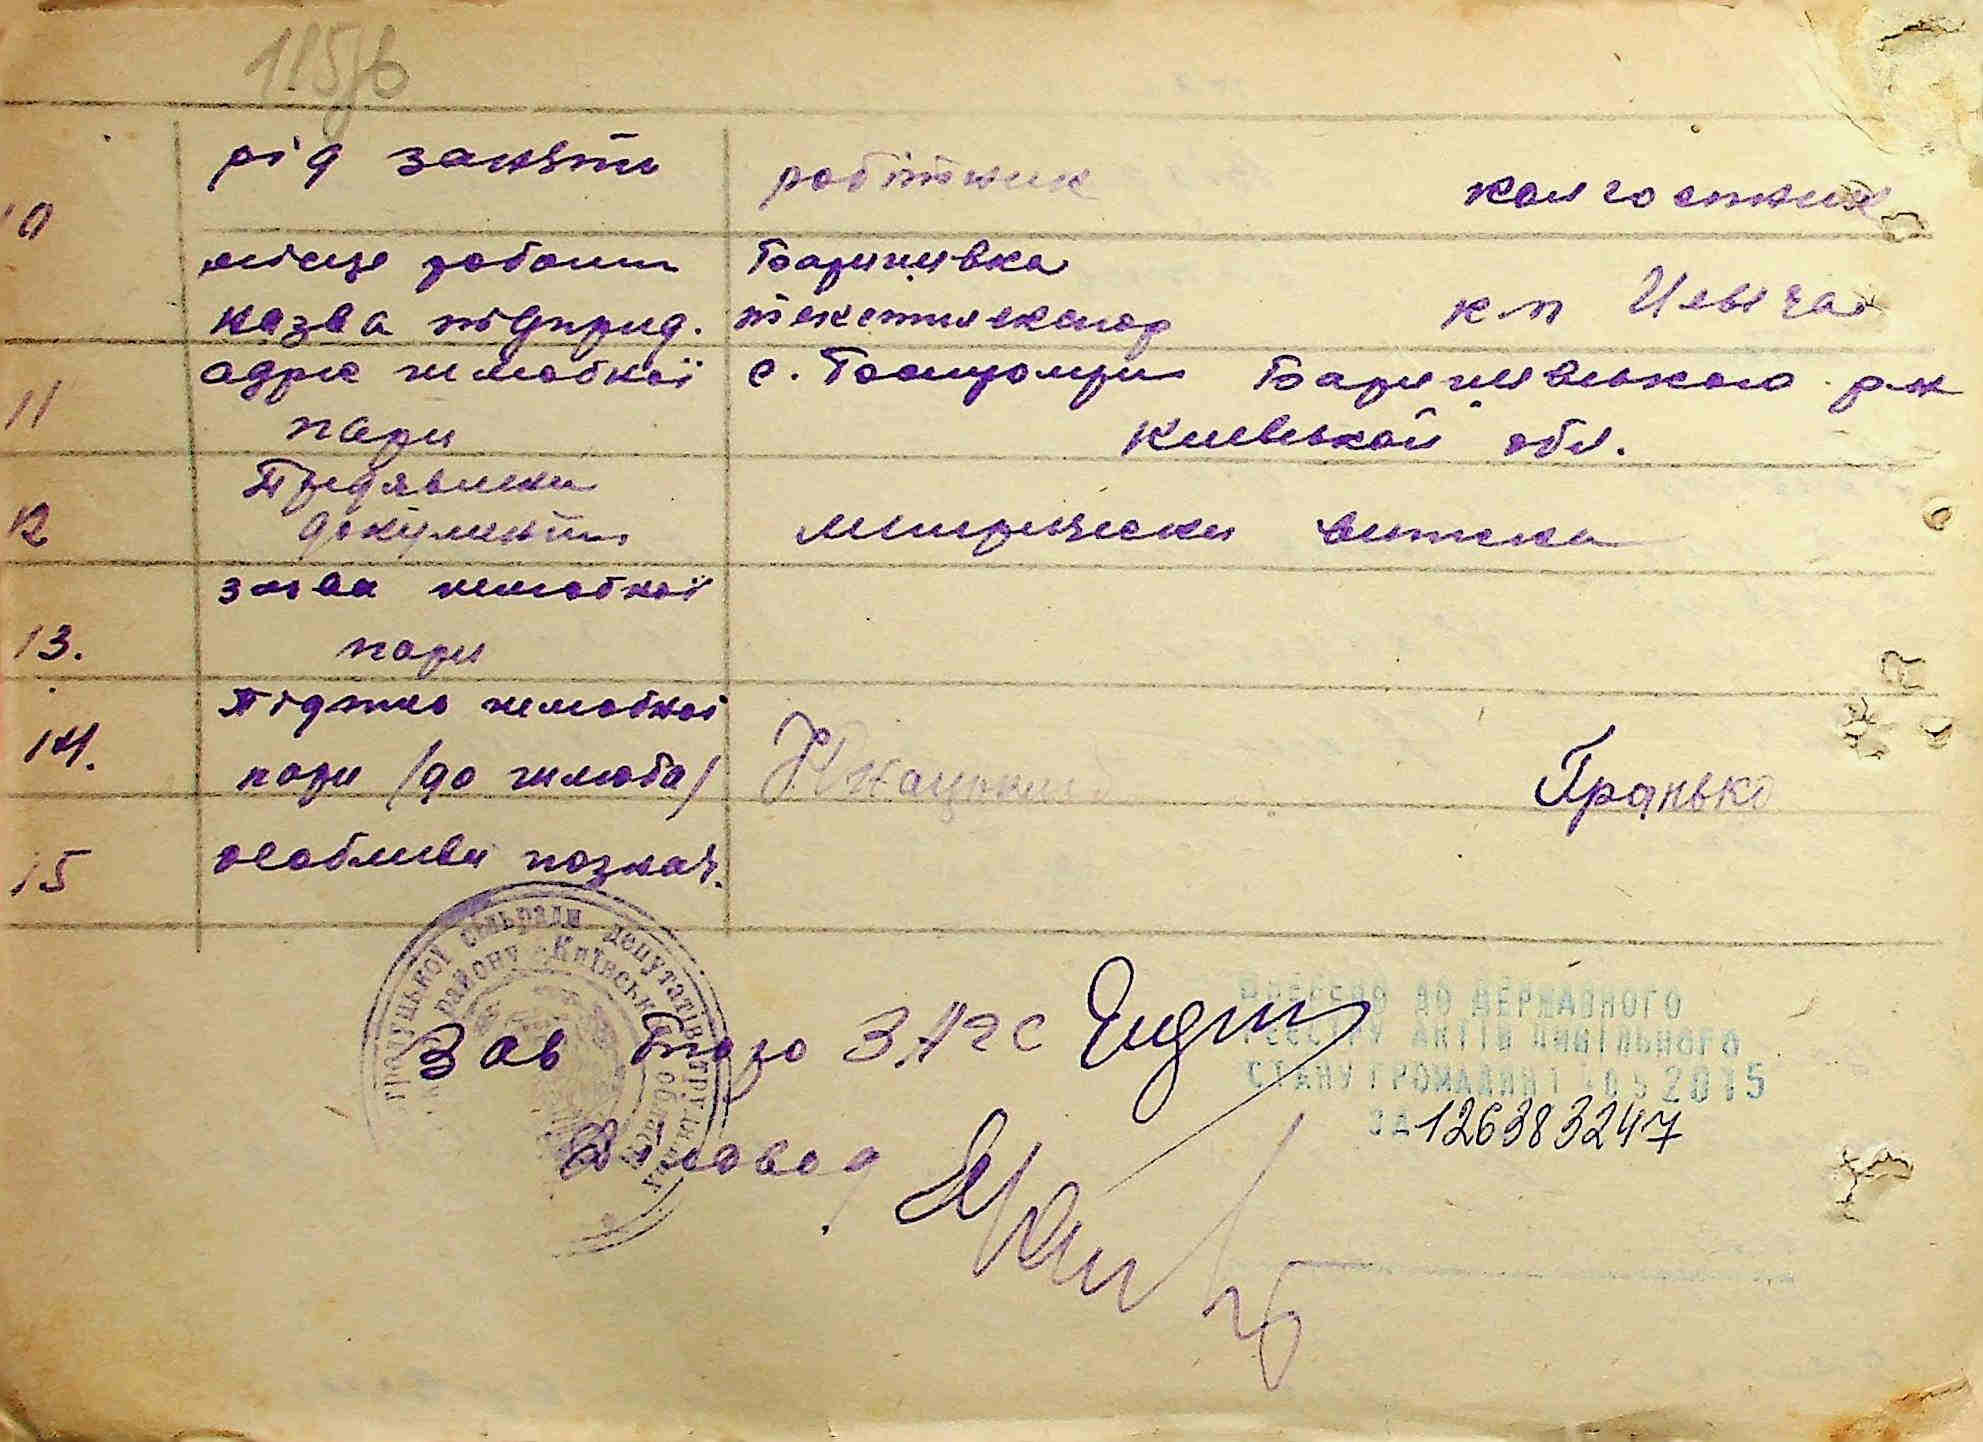 115/б
10 рід занять робітник колгоспник
місце роботи Баришивка
назва підприд. текстилскалар кп Ілыча
11 адрес шлюбної с. Бзитромри Баришивського р-н
пари Киевькой обл.
12 Предявлени
документи митрически витяги
заява шлюбної
13. пари
Підпис шлюбної
14. пари /до шлюба/ Гранько
15 особливи познач.
сільради депутатів трудящих
району Київської області
Зав Бюро ЗАГС
Діловод
ВНЕСЕНО ДО ДЕРЖАВНОГО
РЕЄСТРУ АКТІВ ЦИВІЛЬНОГО
СТАНУ ГРОМАДЯН 2015
ЗА 126383247